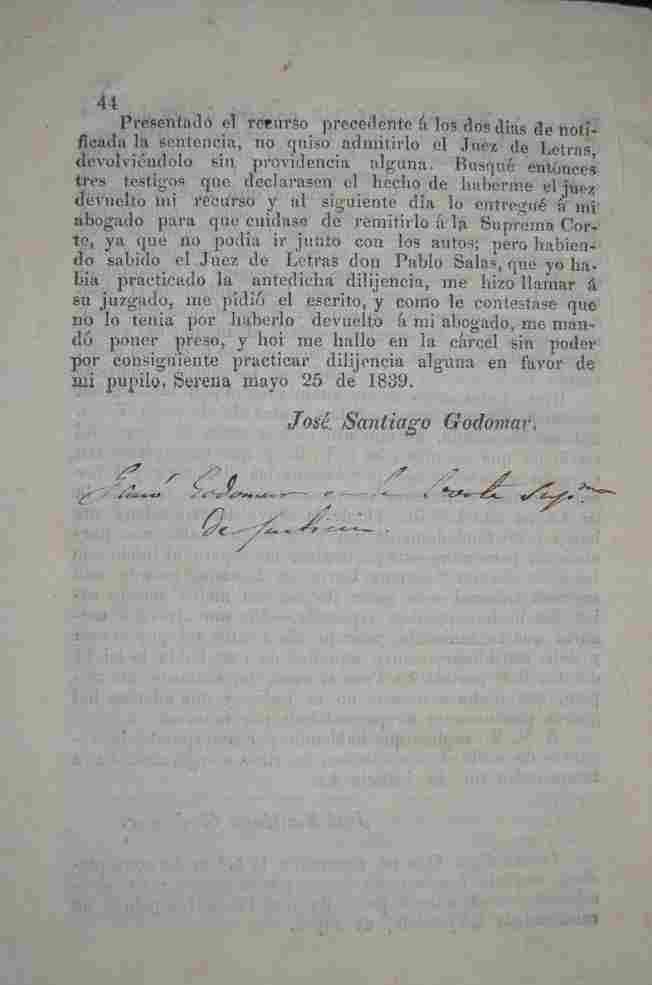 44
Presentado el recurso precedente á los dos dias de noti-
ficada la sentencia, no quiso admitirlo el Juez de Letras,
devolviéndolo sin providencia alguna. Busqué entónces
tres testigos que declarasen el hecho de haberme el juez
devuelto mi recurso y al siguiente dia lo entregué á mi
abogado para que cuidase de remitirlo á la Suprema Cor-
te, ya que no podia ir junto con los autos; pero habien-
do sabido el Juez de Letras don Pablo Salas, que yo ha-
bia practicado la antedicha dilijencia, me hizo llamar á
su juzgado, me pidió el escrito, y como le contestase que
no lo tenia por haberlo devuelto á mi abogado, me man-
dó poner preso, y hoi me hallo en la cárcel sin poder
por consiguiente practicar dilijencia alguna en favor de
mi pupilo. Serena mayo 25 de 1839.
José Santiago Godomar.
Ganó Godomar en la Corte Supma
de Justicia.